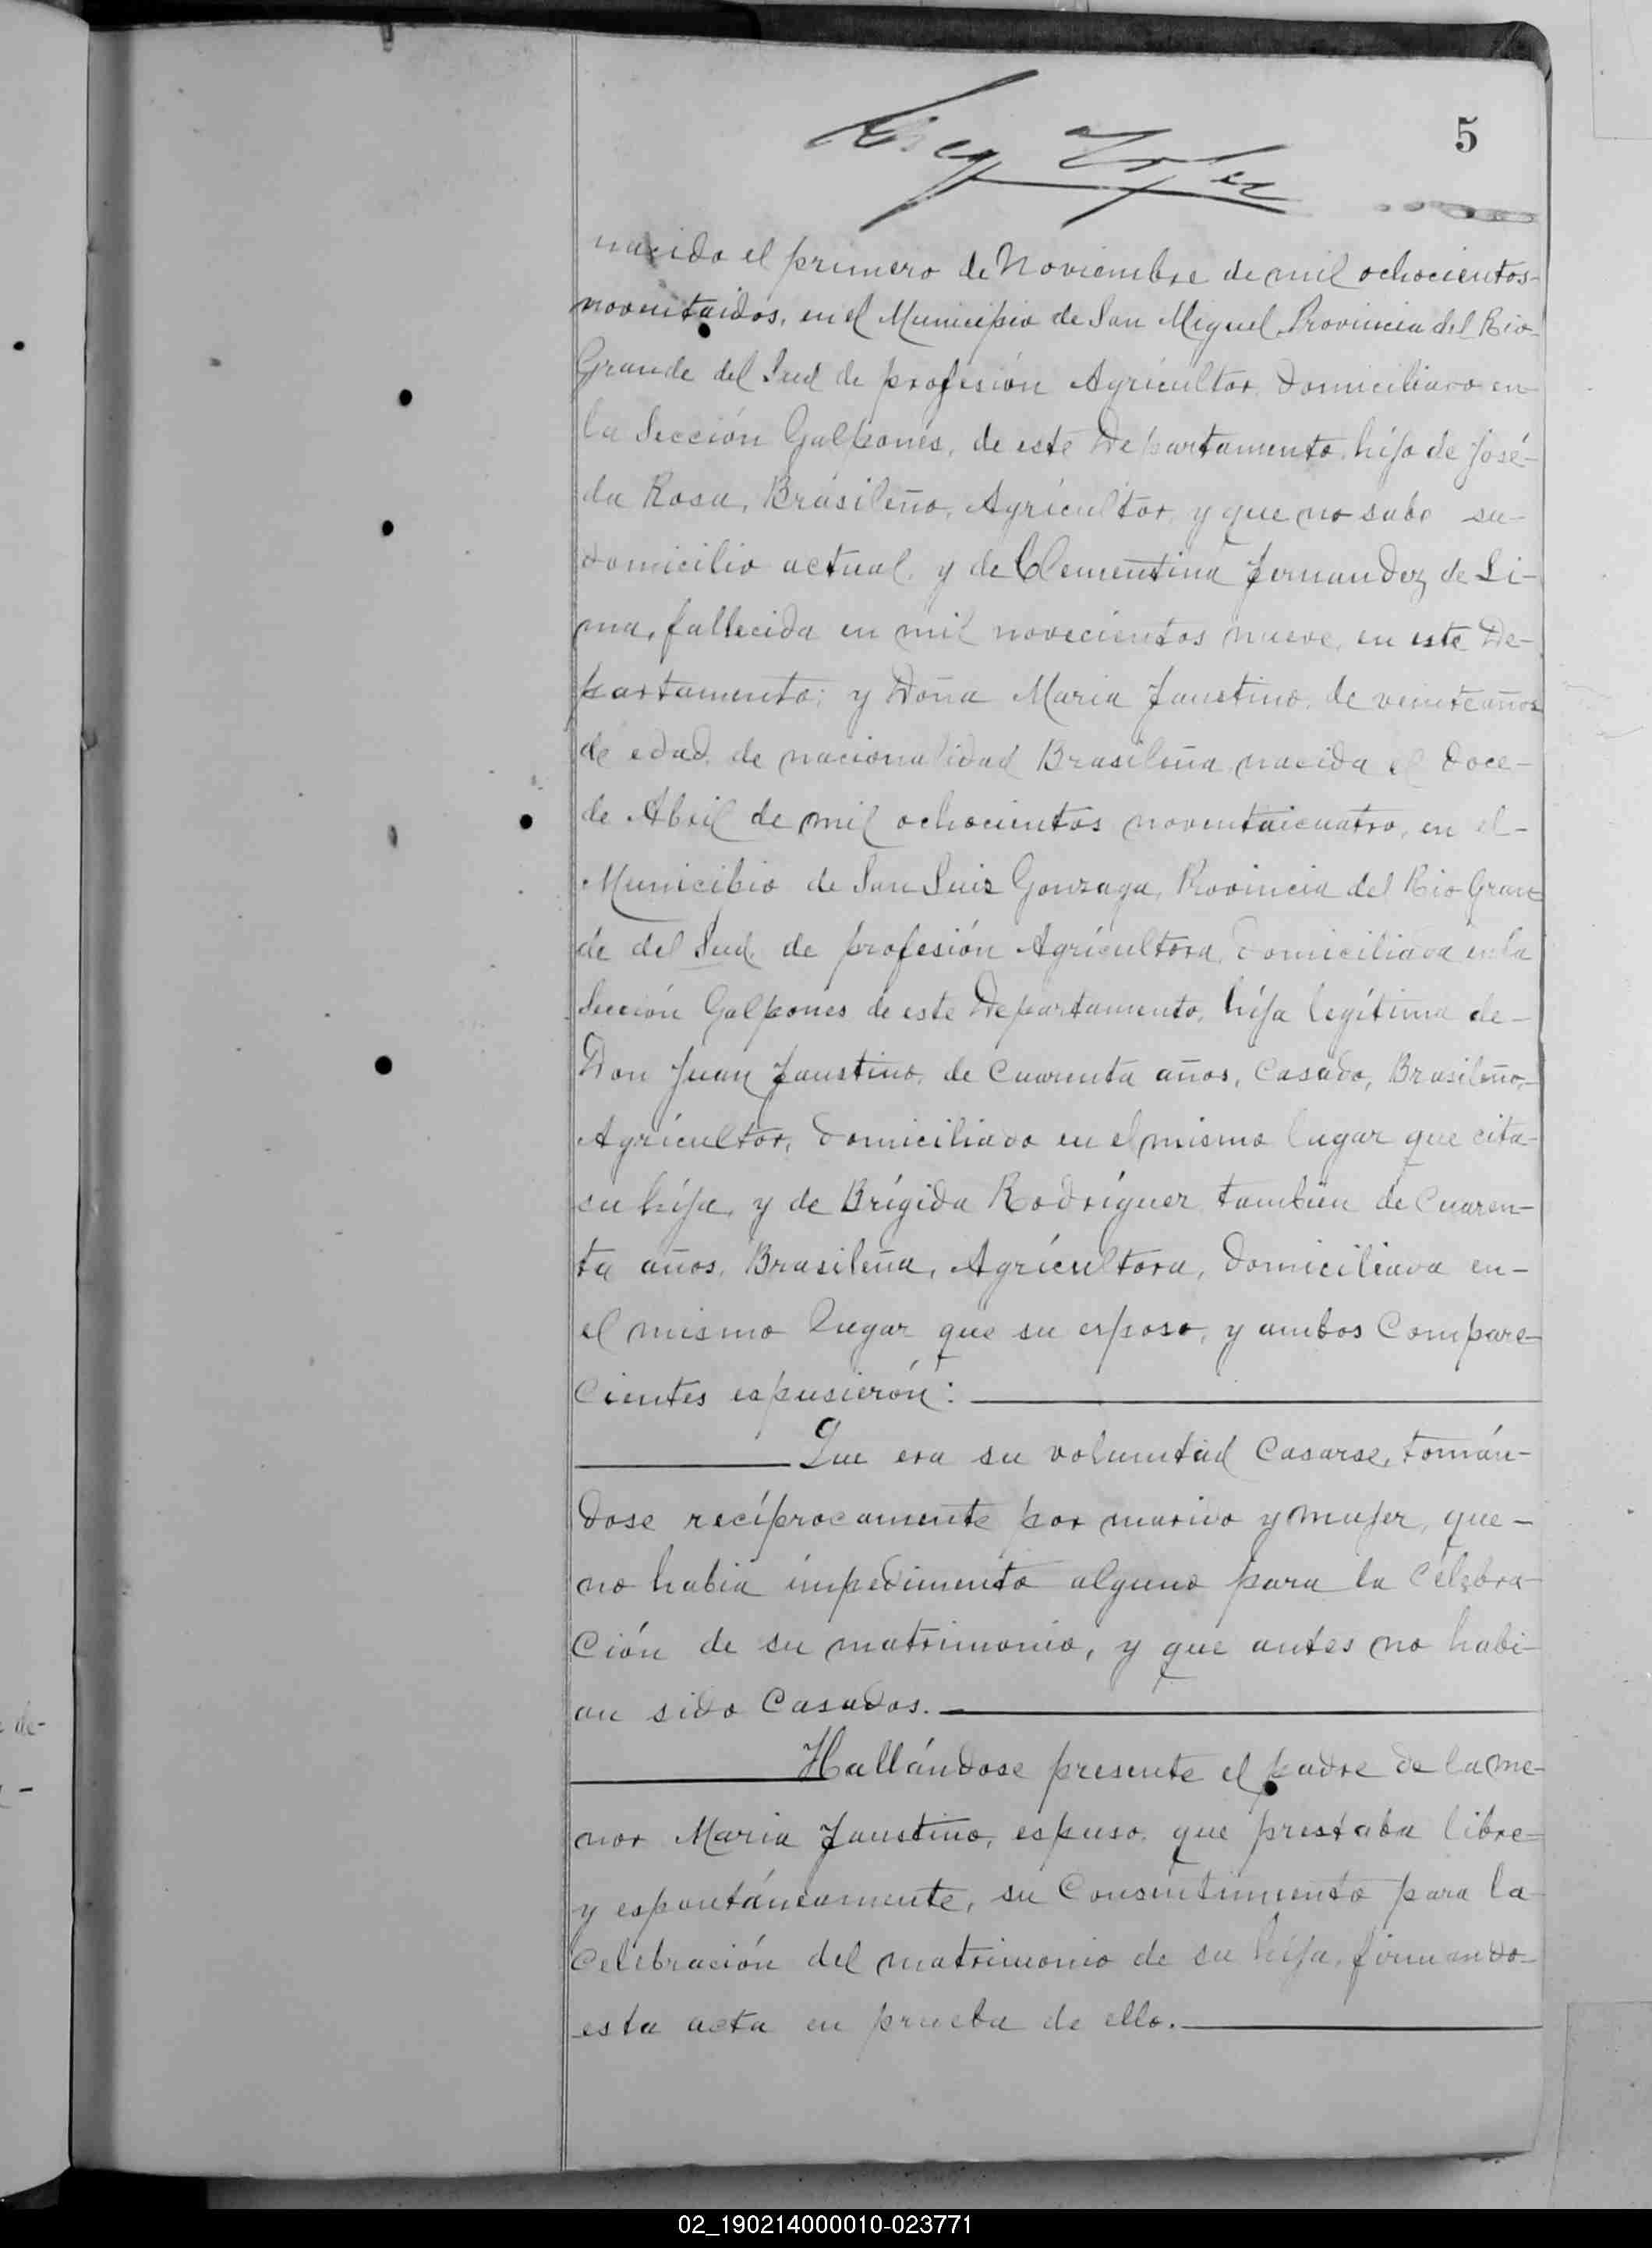 5
nacido el primero de Noviembre de mil ochocientos-
noventaidos, en el Municipio de San Miguel Provincia del Rio-
Grande del Sud de profesión Agricultor, domiciliado en-
la Sección Galpones, de este Departamento, hijo de José-
da Rosa, Brasileño, Agricultor y que no sabe su-
domicilio actual, y de Clementina Fernandez de Li-
ma, fallecida en mil novecientos nueve, en este De-
partamento; y Doña Maria Faustino, de veinte años
de edad, de nacionalidad Brasileña nacida el doce-
de Abril de mil ochocientos noventaicuatro, en el-
Municibio de San Luis Gonzaga, Provincia del Rio Gran-
de del Sud, de profesión Agricultora, domiciliada en la
Sección Galpones de este Departamento, hija legítima de-
Don Juan Faustino, de cuarenta años, casado, Brasileño,-
Agricultor, domiciliado en el mismo lugar que cita-
su hija, y de Brígida Rodríguez tambien de cuaren-
ta años, Brasileña, Agricultora, domiciliada en-
el mismo lugar que su esposo, y ambos compare-
cientes espusierón:
Que era su voluntad casarse, tomán-
dose recíprocamente por marido y mujer, que-
no habia impedimento alguno para la celebra-
ción de su matrimonio, y que antes no habi-
an sido casados.
Hallándose presente el padre de la me-
nor Maria Faustino, espuso que prestaba libre-
y espontáneamente, su consentimiento para la
celebración del matrimonio de su hija, firmando-
esta acta en prueba de ello.
de-
02_190214000010-023771